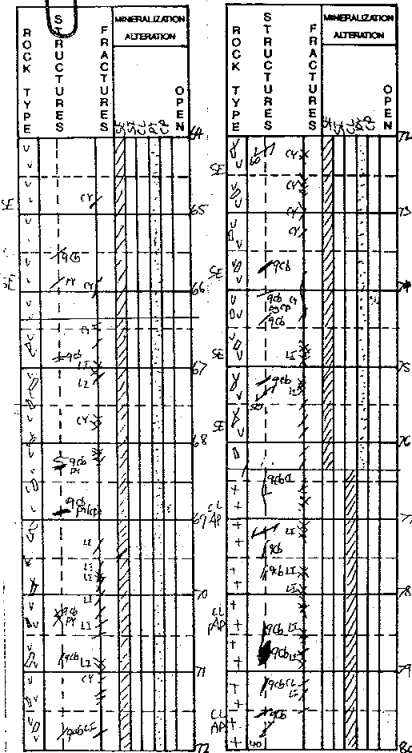 ROCK TYPE
STRUCTURES
FRACTURES
MINERALIZATION
ALTERATION
SE
SI
CL
PY
CP
OPEN
64
SE
CY
65
qcb
PY
CY
66
CY
qcb
LI
67
LI
CY
68
qcb
PY
qcb
69
LI
LI
LI
70
LI
qcb
PY
LI
qcb
LI
71
CY
qcb
LI
72
ROCK TYPE
STRUCTURES
FRACTURES
MINERALIZATION
ALTERATION
SE
SI
CL
PY
CP
OPEN
72
60
CY
SE
CY
73
CY
qcb
SE
74
qcb
CY
qcb
SE
LI
75
qcb
LI
50
SE
76
qcb
CL
CL
AP
77
LI
qcb
qcb
LI
LI
78
CL
AP
qcb
LI
qcb
LI
79
qcb
CL
LI
CL
AP
qcb
40
80